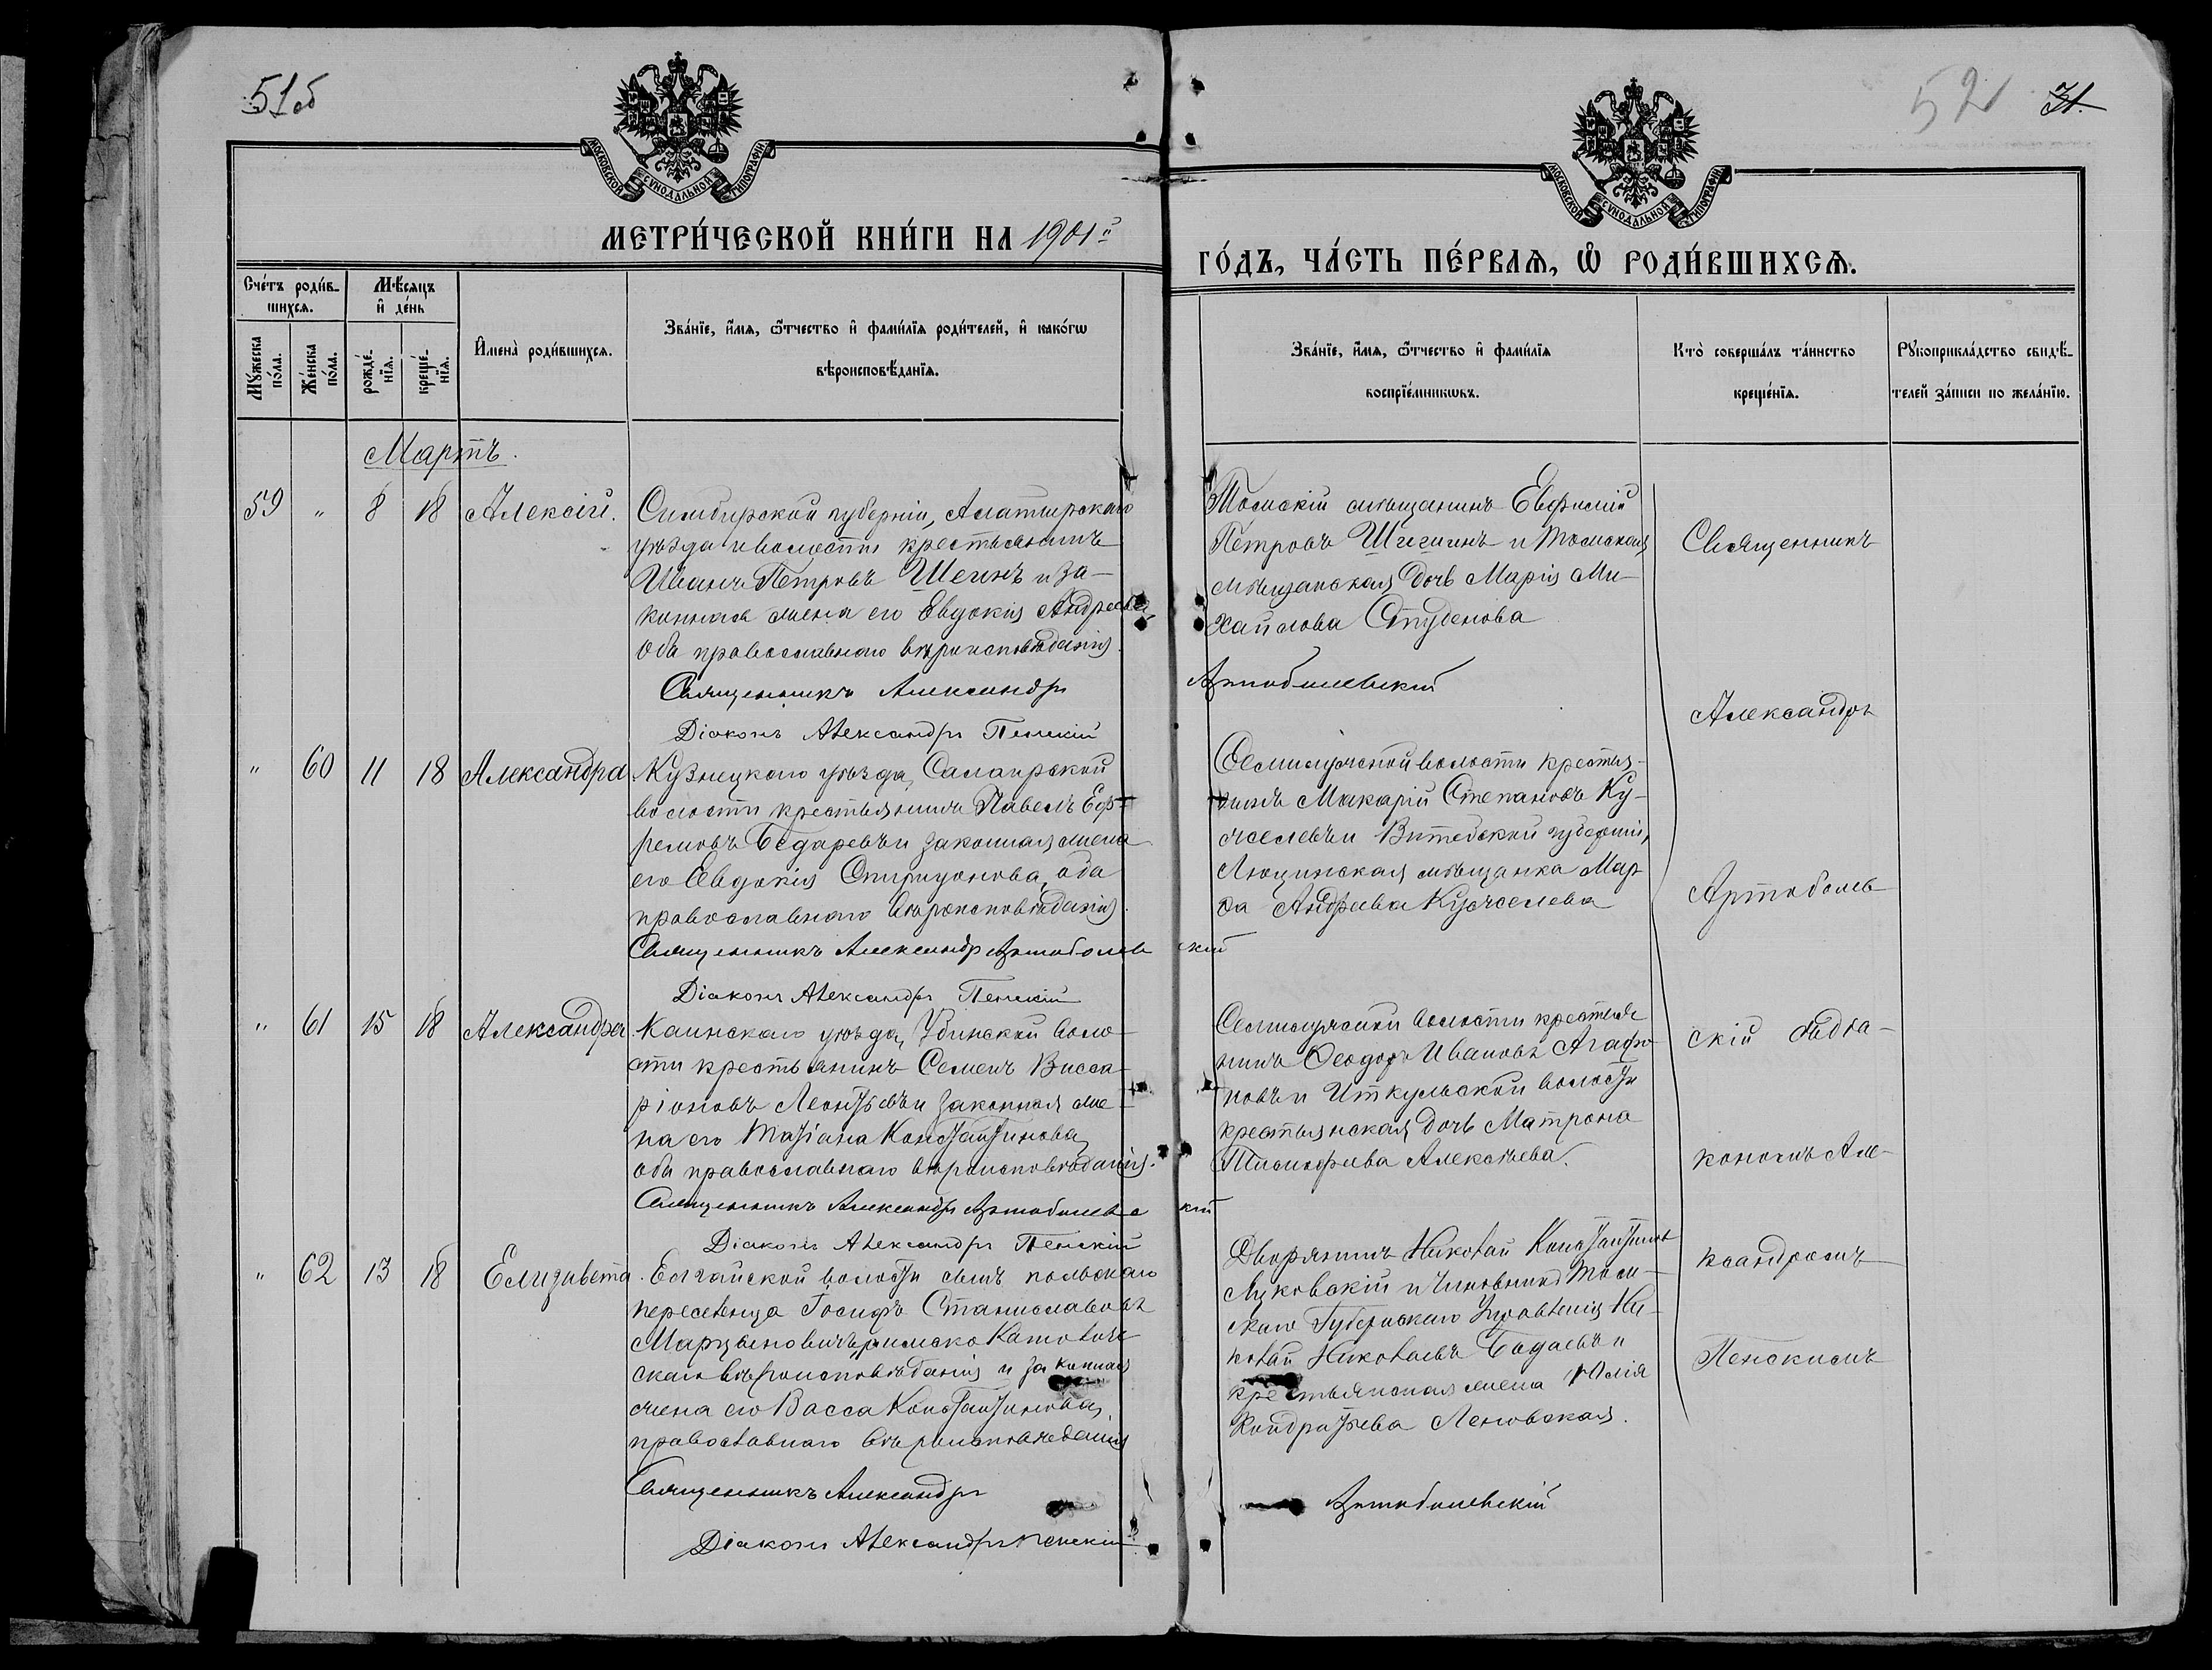 51об
52
31.
МОСКОВСКОЙ СѴНОДАЛЬНОЙ ТИПОГРАФІИ
МОСКОВСКОЙ СѴНОДАЛЬНОЙ ТИПОГРАФІИ
МЕТРИ́ЧЕСКОЙ КНИ́ГИ НА 1901й
ГО́ДЪ, ЧА́СТЬ ПЕ́РВАѦ, Ѡ҆ РОДИ́ВШИХСѦ.
Сче́тъ роди́в-
шихсѧ.
Мѣ́сяцъ
и҆ де́нь
Мꙋ́жеска по́ла.
Же́нска по́ла.
рожде́-
нїѧ.
креще́-
нїѧ.
И҆мена̀ роди́вшихсѧ.
Зва́нїе, и҆́мѧ, ѻ҆́тчество и҆ фами́лїѧ роди́телей, и҆ како́гѡ
вѣроисповѣ́данїѧ.
Зва́нїе, и҆́мѧ, ѻ҆́тчество и҆ фами́лїѧ
воспрїе́мникѡвъ.
Кто̀ соверша́лъ та́инство
креще́нїѧ.
Рꙋкоприкла́дство свидѣ́-
телей за́писи по жела́нїю.
Мартъ.
59 " 8 18 Алексій.
Симбирской губерніи, Алатырскаго
уѣзда и волости крестьянинъ
Иванъ Петровъ Шегинъ и за-
конная жена его Евдокія Андреева
оба православнаго вѣроисповѣданія.
Священникъ Александръ Артоболевскій
Діаконъ Александръ Пенскій
Томскій мѣщанинъ Евфимій
Петровъ Шигинъ и Томская
мѣщанская дочь Марія Ми-
хайлова Студенова
" 60 11 18 Александра
Кузнецкаго уѣзда, Салаирской
волости крестьянинъ Павелъ Еф-
ремовъ Бедаревъ и законная жена
его Евдокія Спиридонова, оба
православнаго вѣроисповѣданія.
Священникъ Александръ Артоболевскій
Діаконъ Александръ Пенскій
Семилужной волости крестья-
нинъ Макарій Степановъ Ку-
жселевъ и Витебской губерніи,
Люцинская мѣщанка Мар
ѳа Андреева Кужселева
" 61 15 18 Александра
Каинскаго уѣзда, Убинской воло-
сти крестьянинъ Семенъ Висса-
ріоновъ Леонтьевъ и законная же-
на его Татіана Константинова,
оба православнаго вѣроисповѣданія.
Священникъ Александръ Артоболевскій
Діаконъ Александръ Пенскій
Семилужной волости крестья
нинъ Ѳеодоръ Ивановъ Агафо
новъ и Иткульской волости
крестьянская дочь Матрона
Тимофеева Алексѣева.
" 62 13 18 Елизавета.
Елгайской волости сынъ польскаго
переселенца Іосифъ Станиславовъ
Марцыновичъ, римско Католиче
скаго вѣроисповѣданія и законная
жена его Васса Константинова,
православнаго вѣроисповѣданія
Священникъ Александръ Артоболевскій
Діаконъ Александръ Пенскій
Дворянинъ Николай Константинов
Луковскій и Чиновникъ Том-
скаго Губернскаго Управленія Ни-
колай Николаевъ Бадаевъ и
крестьянская жена Юлія
Кондратьева Леновская.
Священникъ
Александръ
Артоболев-
скій съ діа-
кономъ Але-
ксандромъ
Пенскимъ